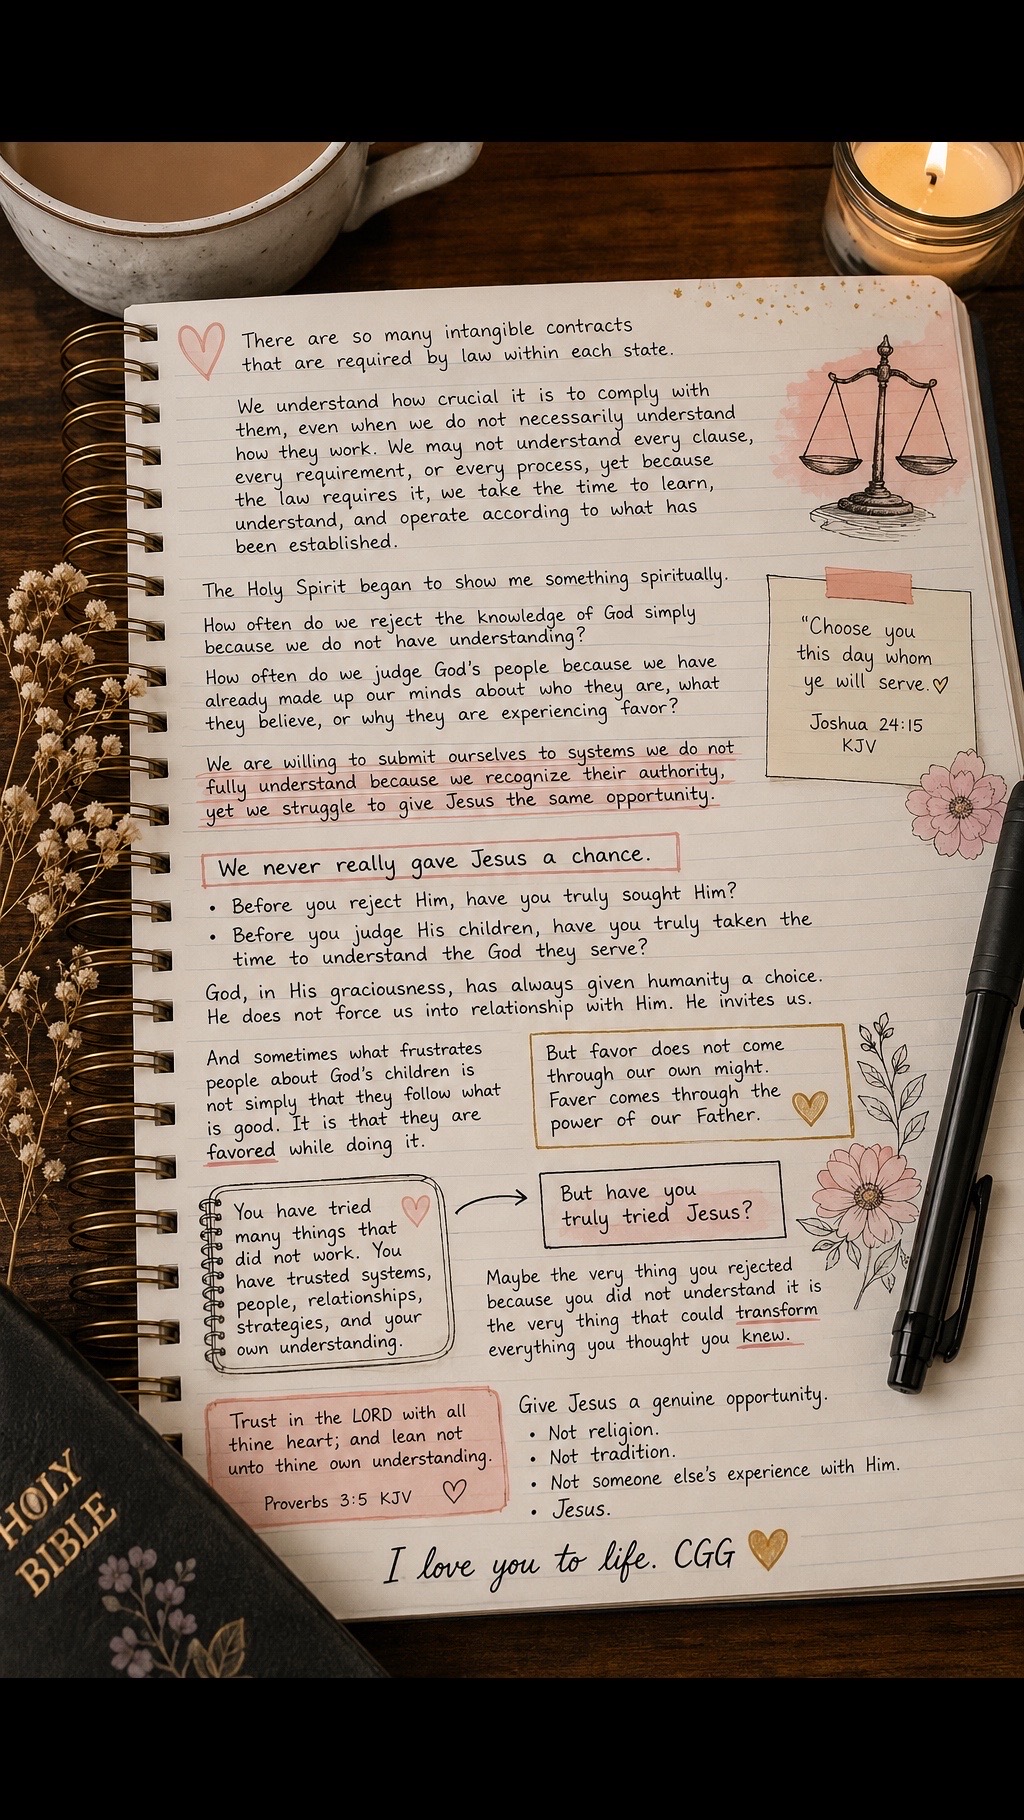 There are so many intangible contracts
that are required by law within each state.
We understand how crucial it is to comply with
them, even when we do not necessarily understand
how they work. We may not understand every clause,
every requirement, or every process, yet because
the law requires it, we take the time to learn,
understand, and operate according to what has
been established.
The Holy Spirit began to show me something spiritually.
How often do we reject the knowledge of God simply
because we do not have understanding?
How often do we judge God's people because we have
already made up our minds about who they are, what
they believe, or why they are experiencing favor?
We are willing to submit ourselves to systems we do not
fully understand because we recognize their authority,
yet we struggle to give Jesus the same opportunity.
"Choose you
this day whom
ye will serve.
Joshua 24:15
KJV
We never really gave Jesus a chance.
• Before you reject Him, have you truly sought Him?
• Before you judge His children, have you truly taken the
time to understand the God they serve?
God, in His graciousness, has always given humanity a choice.
He does not force us into relationship with Him. He invites us.
And sometimes what frustrates
people about God's children is
not simply that they follow what
is good. It is that they are
favored while doing it.
But favor does not come
through our own might.
Faver comes through the
power of our Father.
You have tried
many things that
did not work. You
have trusted systems,
people, relationships,
strategies, and your
own understanding.
But have you
truly tried Jesus?
Maybe the very thing you rejected
because you did not understand it is
the very thing that could transform
everything you thought you knew.
Trust in the LORD with all
thine heart; and lean not
unto thine own understanding.
Proverbs 3:5 KJV
Give Jesus a genuine opportunity.
• Not religion.
• Not tradition.
• Not someone else's experience with Him.
• Jesus.
I love you to life. CGG
HOLY
BIBLE